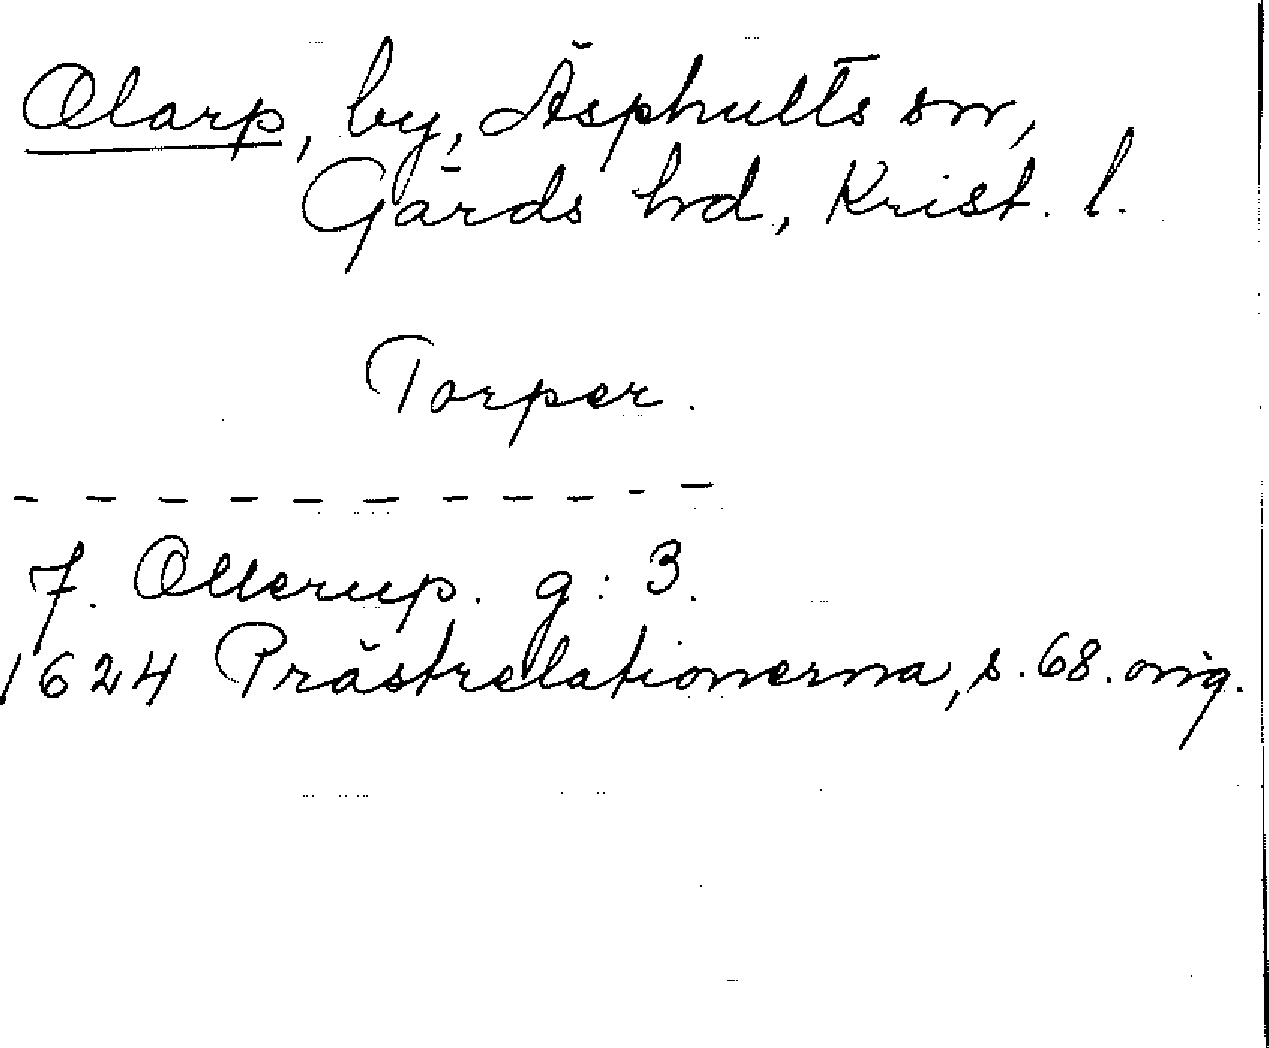 Olarp, by, Äsphults sn,
Gärds hd, Krist. l.
Torper.
7. Ollerup. g: 3.
1624 Prästrelationerna, s. 68. orig.